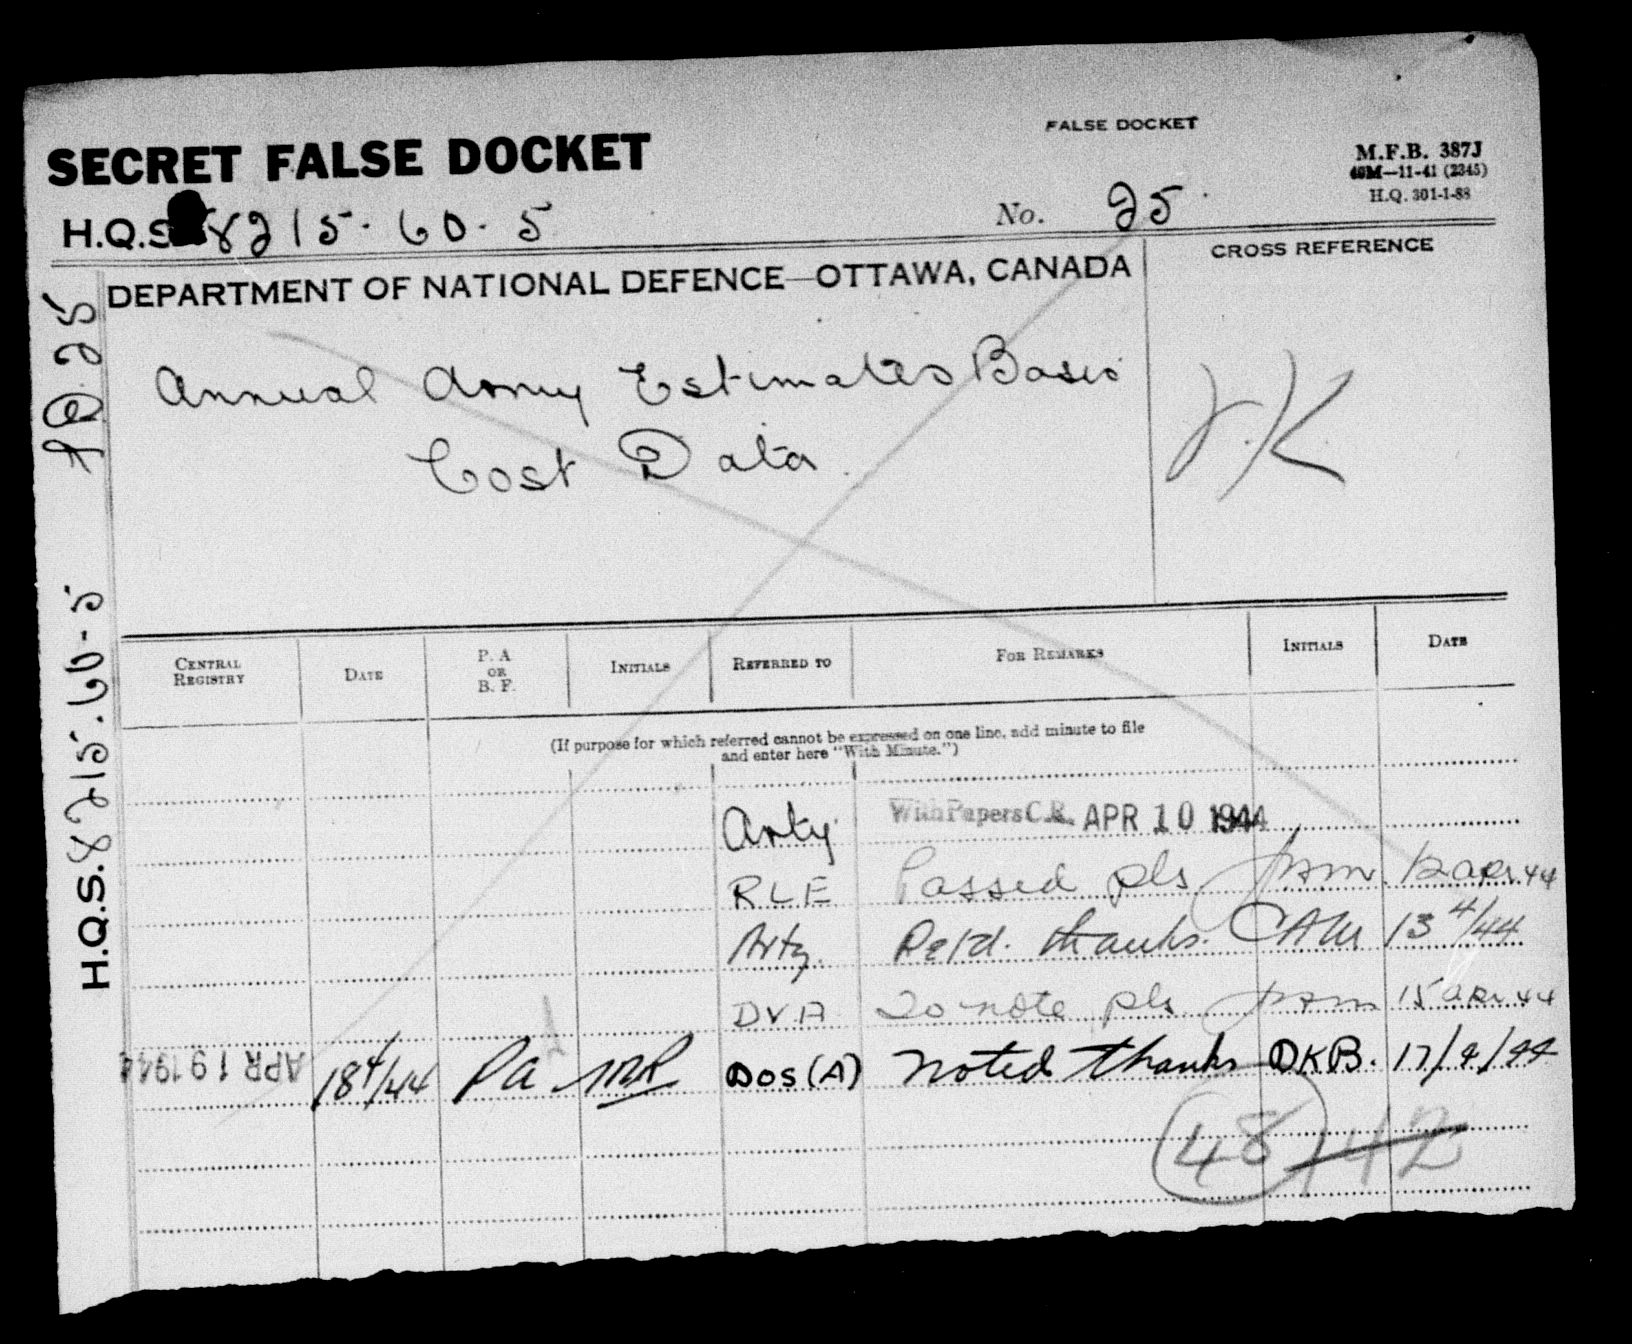 FALSE DOCKET
SECRET FALSE DOCKET
M.F.B. 387J
40M—11-41 (2345)
H.Q. 301-1-88
H.Q.S. 8215-60-5
No. 25
DEPARTMENT OF NATIONAL DEFENCE—OTTAWA, CANADA
CROSS REFERENCE
Annual Army Estimates Basic
Cost Data.
J.K.
H.Q.S. 8215-60-5
25
CENTRAL REGISTRY DATE P. A. OR B. F. INITIALS REFERRED TO FOR REMARKS INITIALS DATE
(If purpose for which referred cannot be expressed on one line, add minute to file
and enter here "With Minute.")
Arty With Papers C.R. APR 10 1944
RLE Passed pls 12 Apr 44
Arty. Retd. thanks. CAM 13 4/44
DVA To note pls 15 Apr 44
APR 19 1944 18 4/44 Pa DOS (A) Noted thanks DKB. 17/4/44
48 142